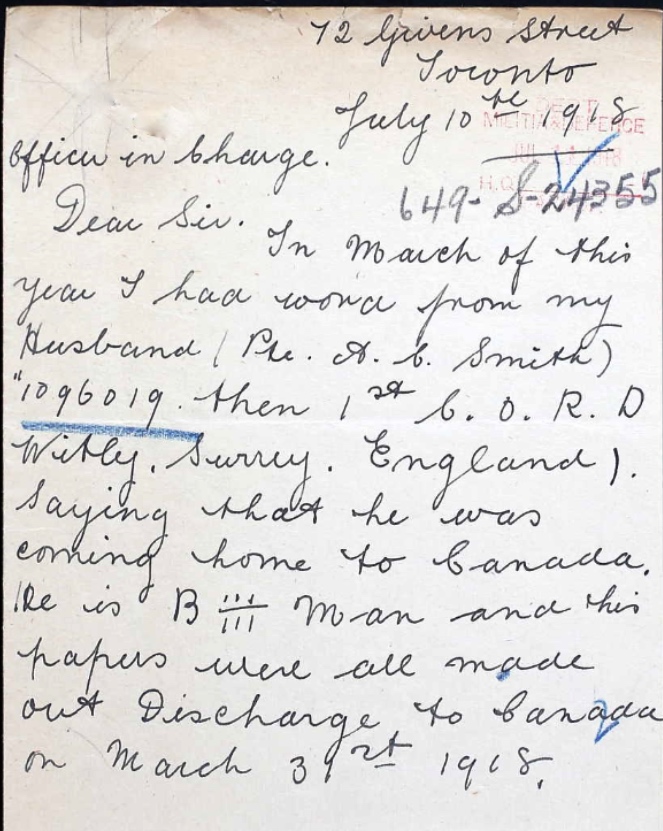 72 Givens Street
Toronto
July 10th 1918
DEPT.
MILITIA & DEFENCE
JUL 11 1918
H.Q.
Officer in Charge.
649-S-24355
Dear Sir.
In March of this
year I had word from my
Husband (Pte. A. C. Smith)
"1096019. then 1st C. O. R. D
Witly. Surrey. England).
Saying that he was
coming home to Canada.
He is B III Man and his
papers were all made
out Discharge to Canada
on March 31st 1918.